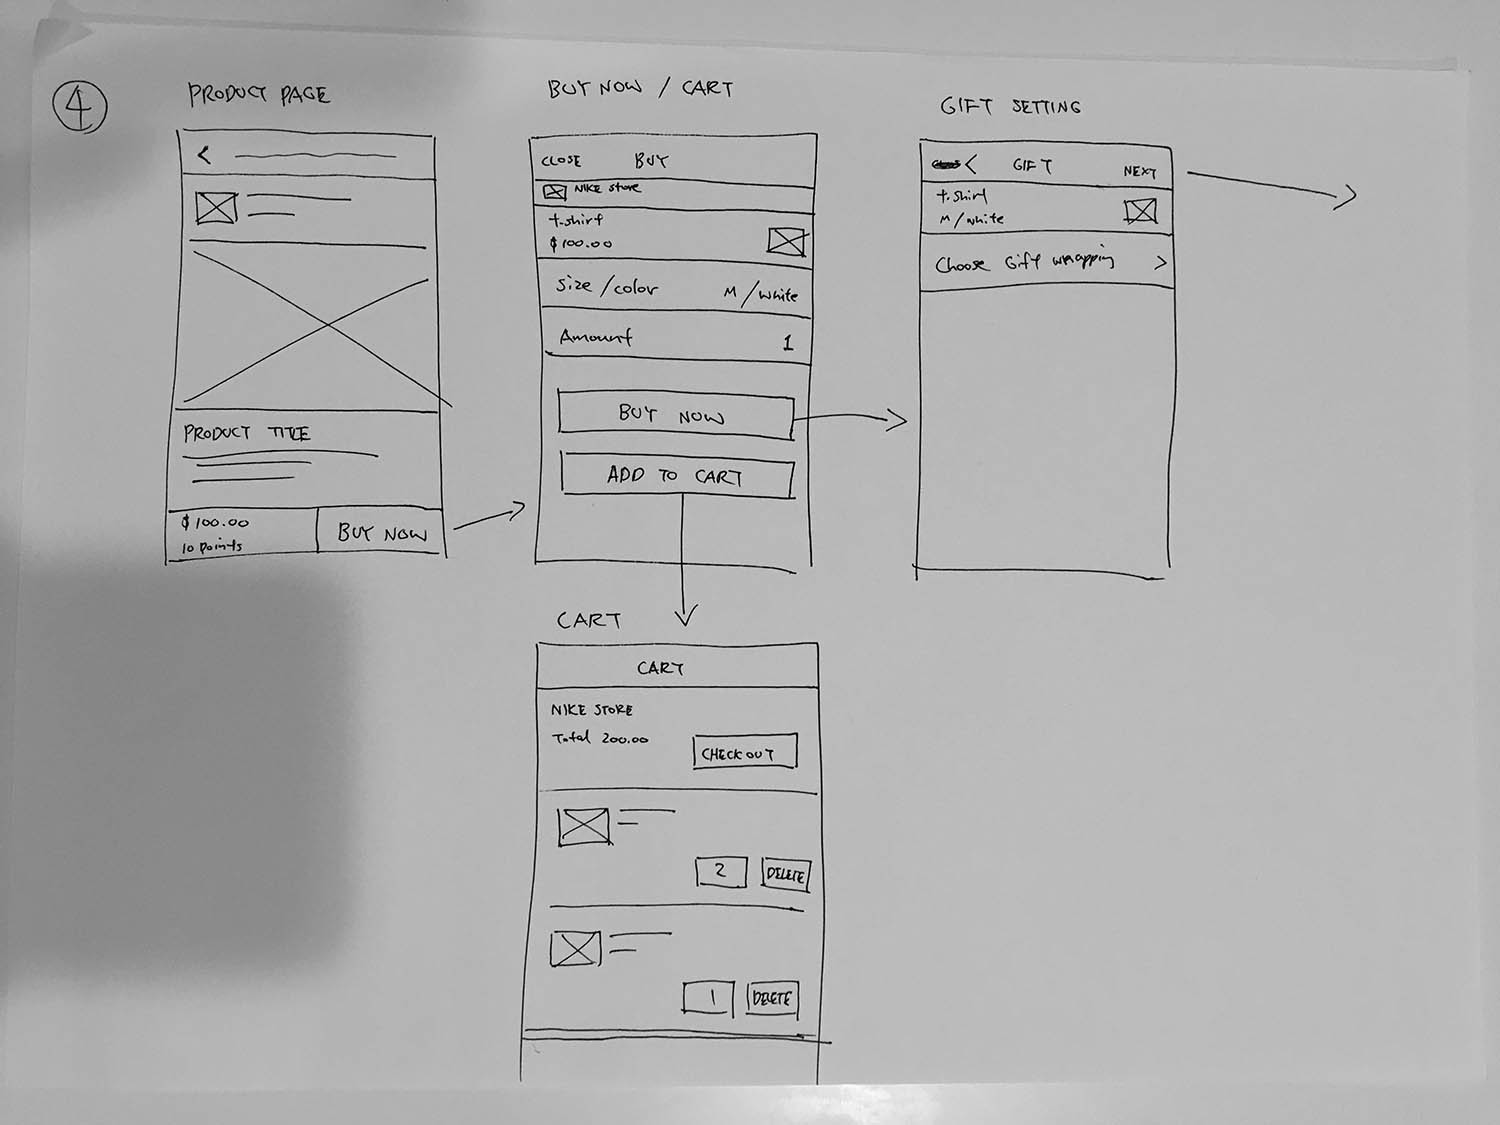 4
PRODUCT PAGE
<
PRODUCT TITLE
$100.00
10 points
BUY NOW
BUY NOW / CART
CLOSE BUY
NIKE Store
t.shirt
$100.00
Size/color M/white
Amount 1
BUY NOW
ADD TO CART
GIFT SETTING
< GIFT NEXT
t.shirt
M/white
Choose Gift wrapping >
CART
CART
NIKE STORE
Total 200.00
CHECK OUT
2 DELETE
1 DELETE